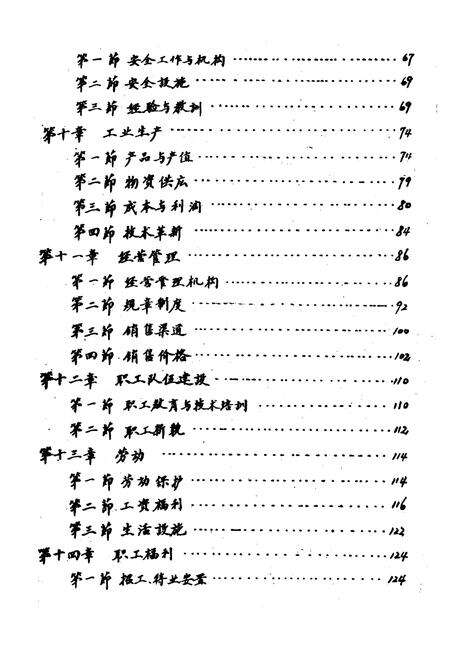 第一节 安全工作与机构 …… 67
第二节 安全设施 …… 69
第三节 经验与教训 …… 69
第十章 工业生产 …… 74
第一节 产品与产值 …… 74
第二节 物资供应 …… 79
第三节 成本与利润 …… 80
第四节 技术革新 …… 84
第十一章 经营管理 …… 86
第一节 经营管理机构 …… 86
第二节 规章制度 …… 92
第三节 销售渠道 …… 100
第四节 销售价格 …… 102
第十二章 职工队伍建设 …… 110
第一节 职工教育与技术培训 …… 110
第二节 职工新貌 …… 112
第十三章 劳动 …… 114
第一节 劳动保护 …… 114
第二节 工资福利 …… 116
第三节 生活设施 …… 122
第十四章 职工福利 …… 124
第一节 招工、待业安置 …… 124